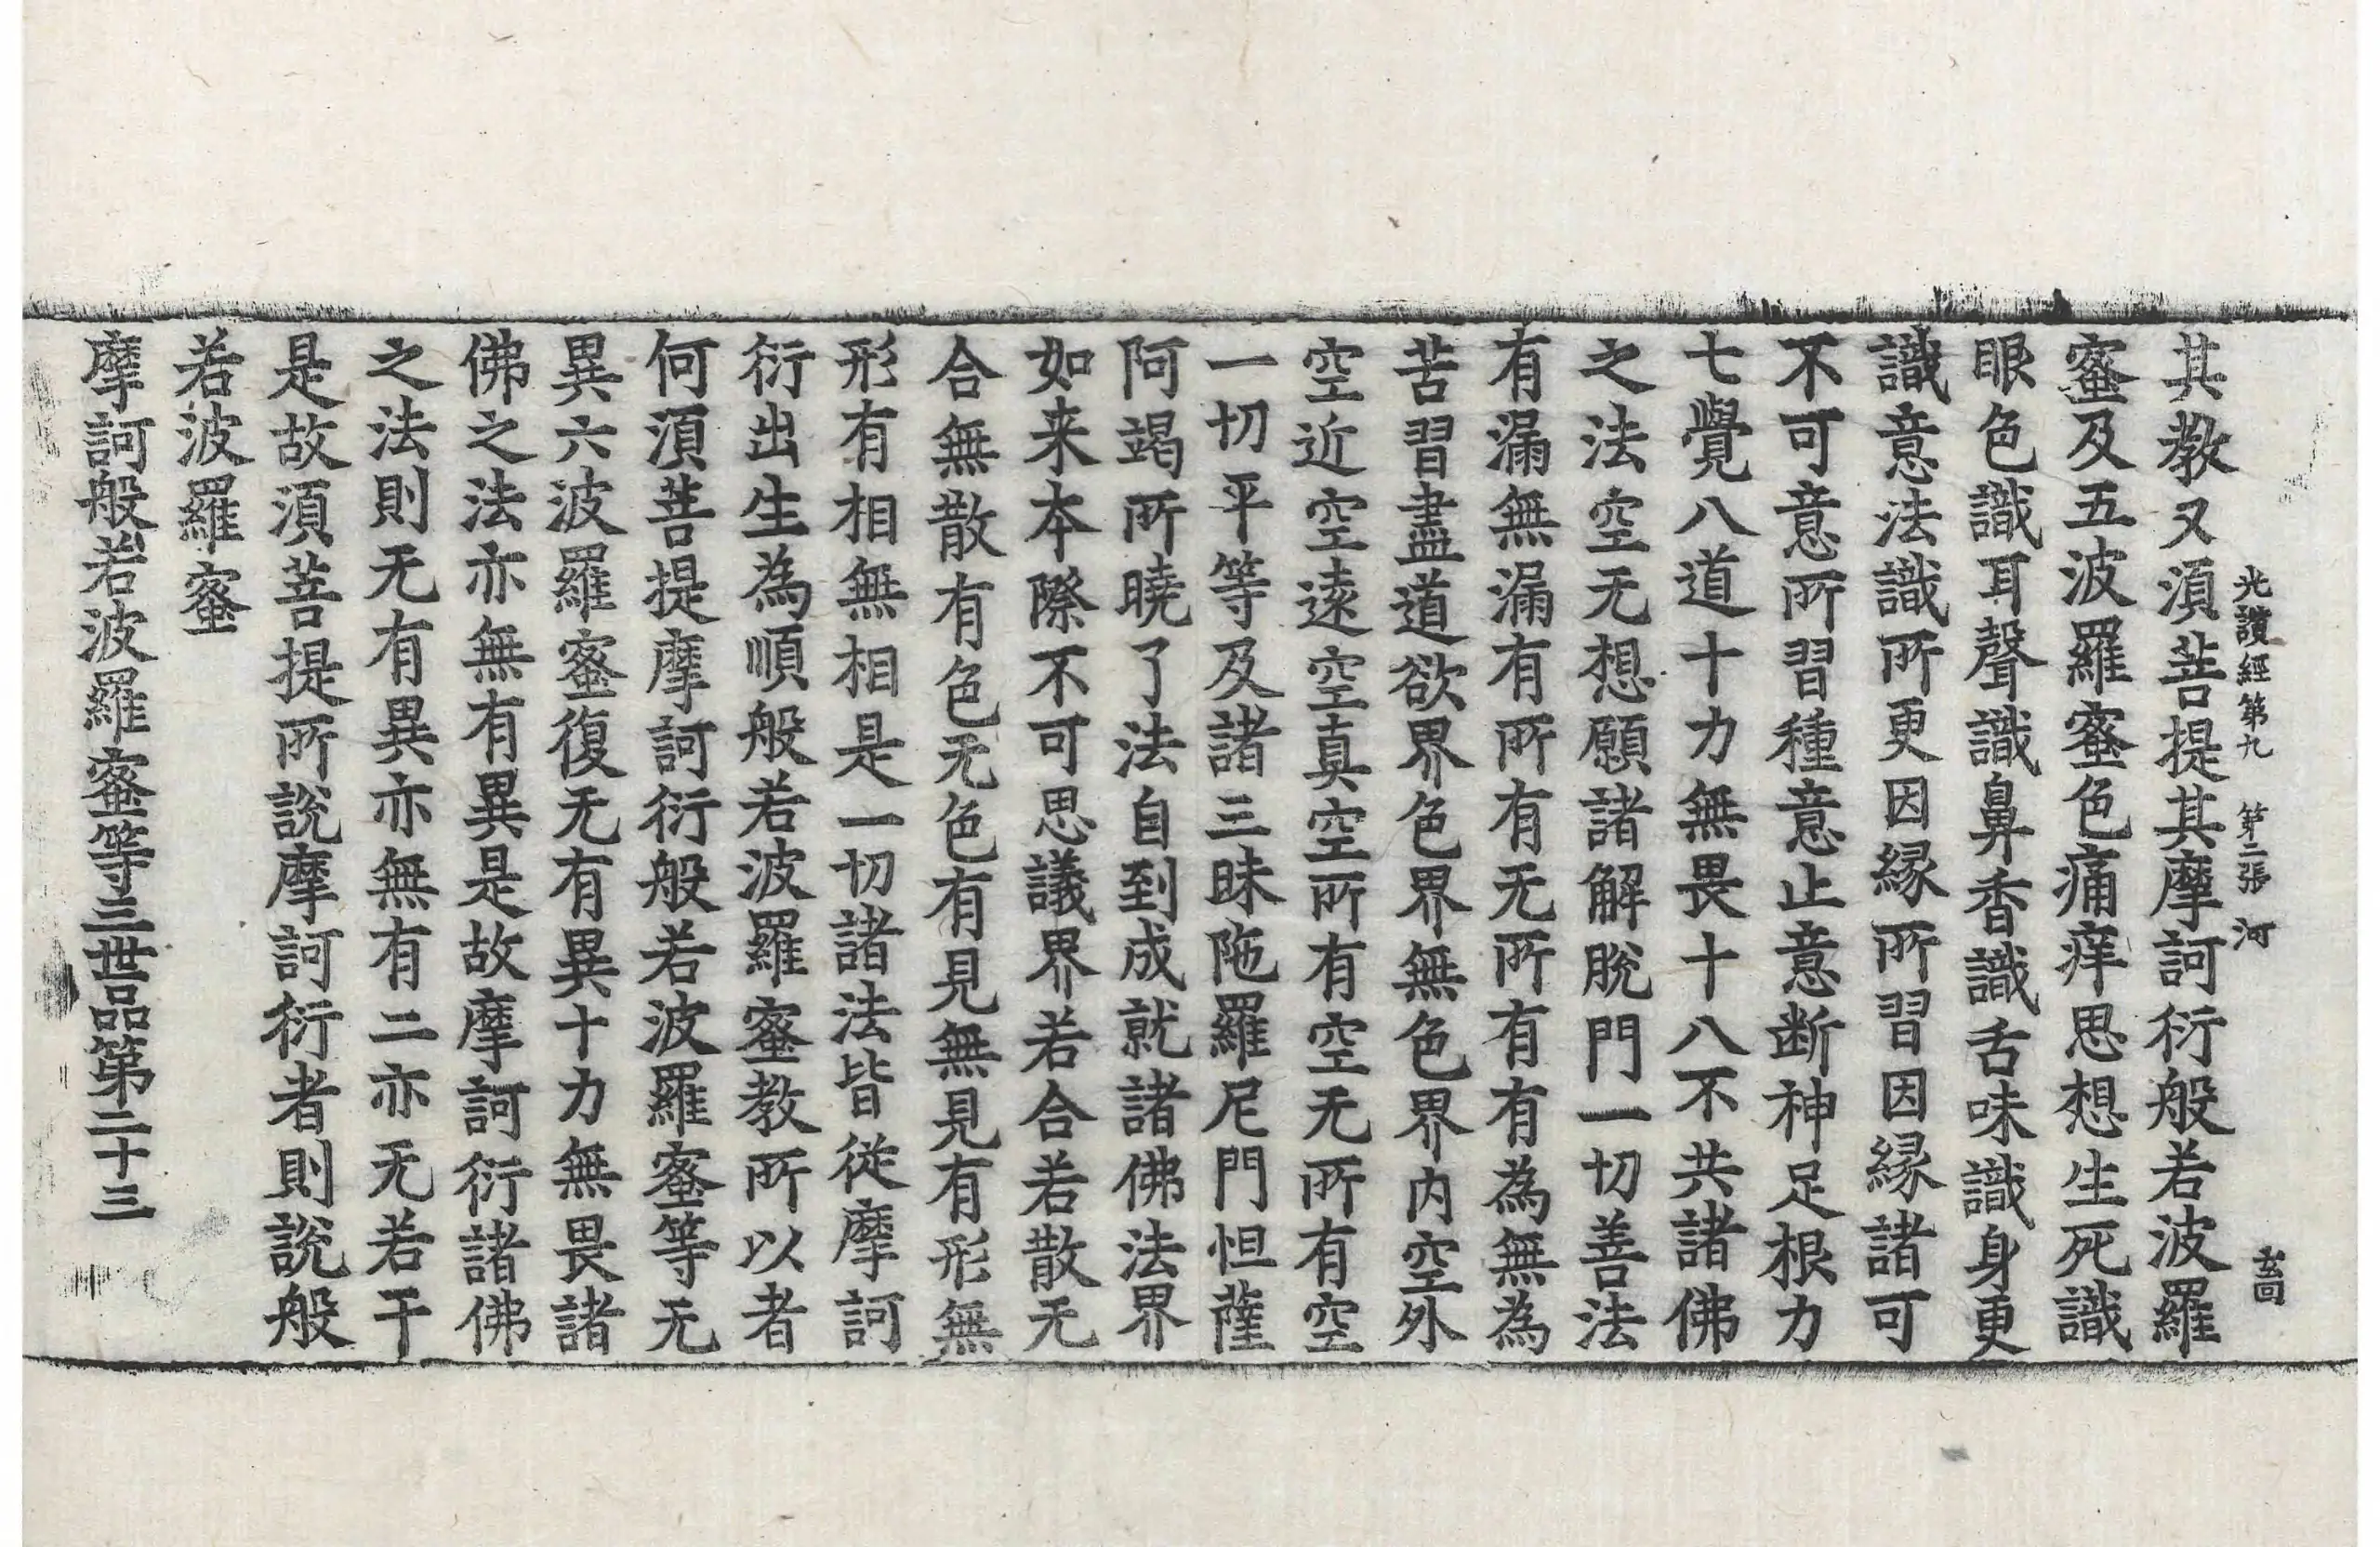 光讚經第九　第二張　河
其教又須菩提其摩訶衍般若波羅
蜜及五波羅蜜色痛痒思想生死識
眼色識耳聲識鼻香識舌味識身更
識意法識所更因緣所習因緣諸可
不可意所習種意止意断神足根力
七覺八道十力無畏十八不共諸佛
之法空无想願諸解脫門一切善法
有漏無漏有所有无所有有為無為
苦習盡道欲界色界無色界內空外
空近空遠空真空所有空无所有空
一切平等及諸三昧陁羅尼門怛薩
阿竭所曉了法自到成就諸佛法界
如来本際不可思議界若合若散无
合無散有色无色有見無見有形無
形有相無相是一切諸法皆從摩訶
衍出生為順般若波羅蜜教所以者
何須菩提摩訶衍般若波羅蜜等无
異六波羅蜜復无有異十力無畏諸
佛之法亦無有異是故摩訶衍諸佛
之法則无有異亦無有二亦无若干
是故須菩提所說摩訶衍者則說般
若波羅蜜
摩訶般若波羅蜜等三世品第二十三